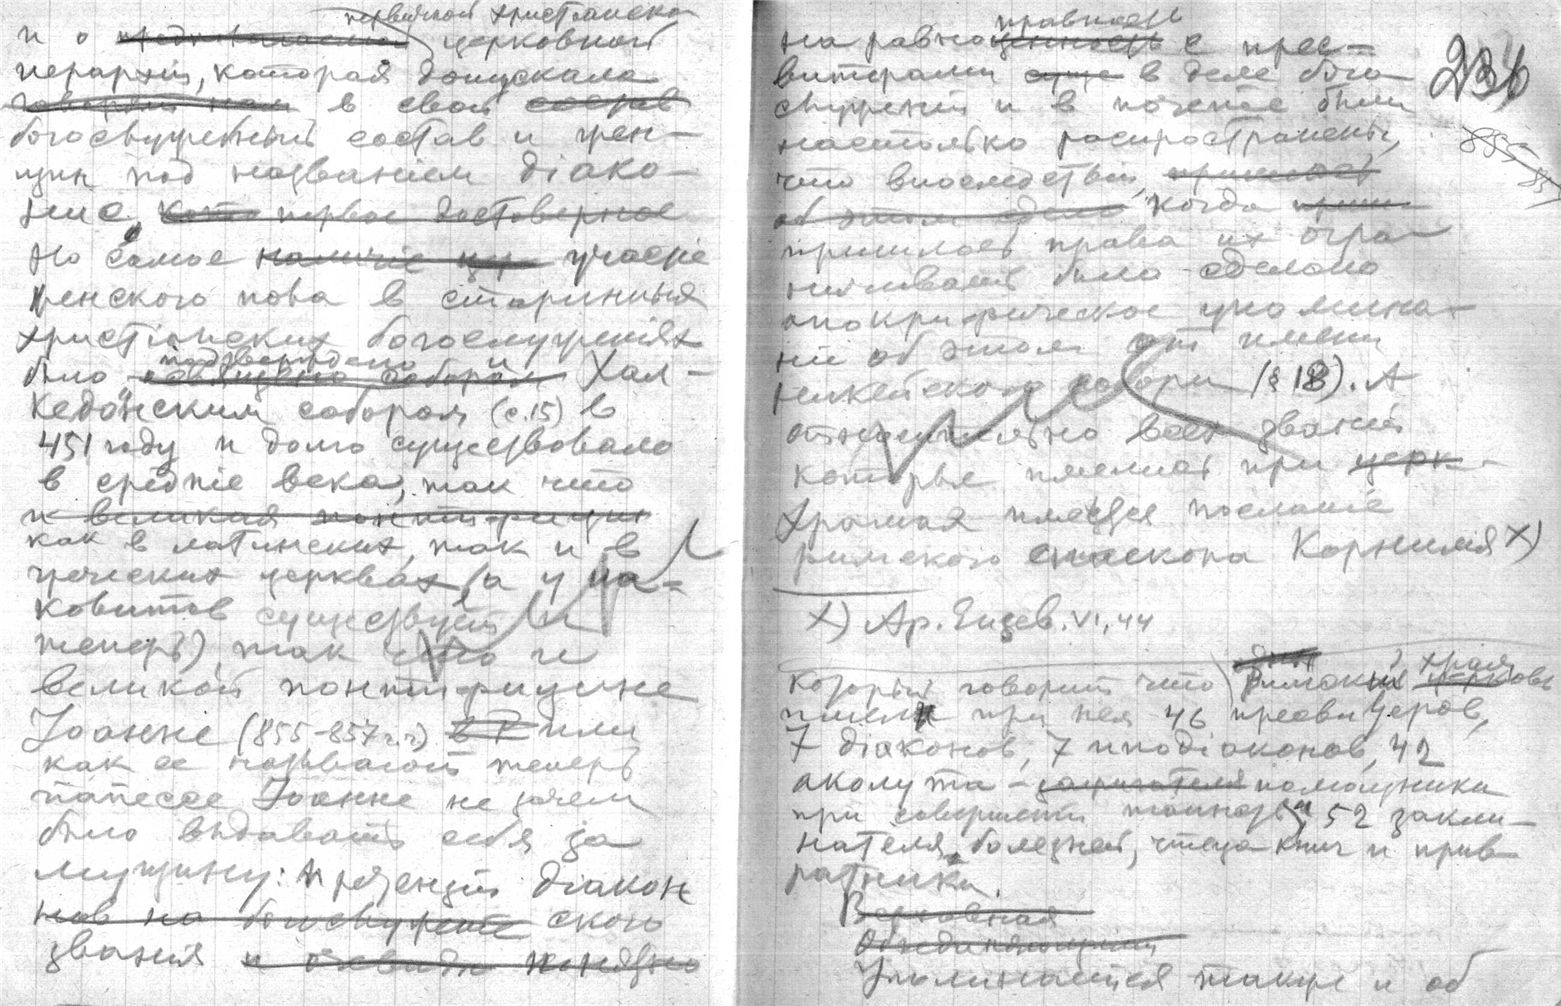 первичной христианско
и о церковной
иерархіи, которая допускала
говорят нам в свой состав
богослужебный состав и жен-
щин под названіем діако-
нис, первое достоверное
Но самое наличіе участіе
женского пола в старинных
христіанских богослуженіях
подтверждено и
было собором Хал-
кедонским собором (с.15) в
451 году и долго существовало
в средніе века, так что
и великая понтифициа
как в латинских, так и в
греческих церквах, (а у яа-
ковитов существует и
теперь) так что и
великой понтифицине
Іоанне (855-857 г.г.) или
как ее называют теперь
папессе Іоанне не зачем
было выдавать себя за
мущину: Претензіи діакон
нов на богослуженіе ского
званія и
правность
на равноценность с прес-
витерами в деле бого
служенія и в почете были
настолько распространены,
что впоследствіи,
об этом когда
пришлось права их огра-
ничивать было сделано
апокрифическое упомина-
ніе об этом от имени
никейского собора (§ 18). А
относительно всех званій
которые имелись при церк-
храмах имеется посланіе
римского епископа Корнилія X)
X) Ар. Евсев. VI, 44
который говорит что Римская церковь
храм
имел при нея 46 пресвитеров,
7 діаконов, 7 иподіаконов, 42
аколута - помощники
при совершеніи таинств, 52 закли-
нателя болезней, чтеца книг и прив
ратника.
Верховная
Объединяющим
Упоминается также и об
234
855